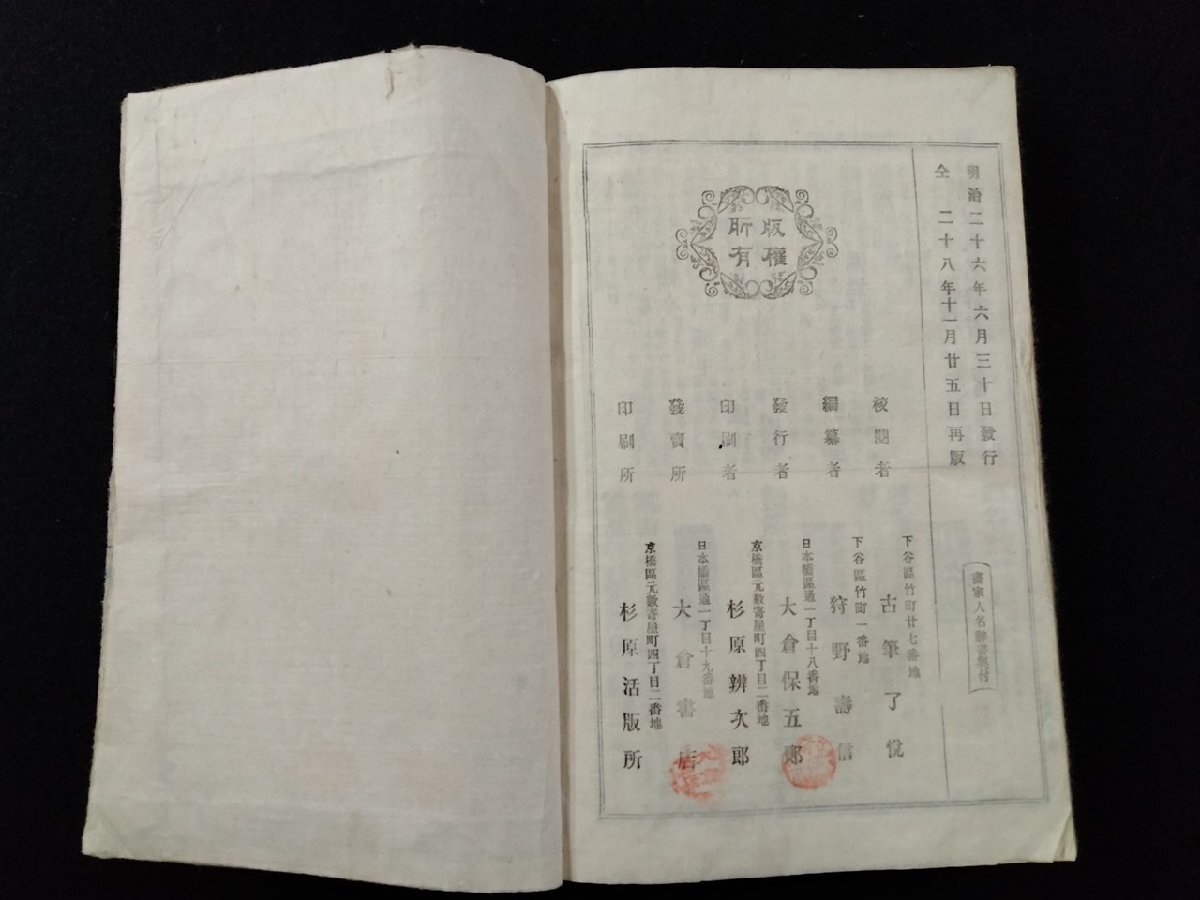 明治二十六年六月三十日發行
仝 二十八年十一月廿五日再版
畫家人名聯書奥付
版權
所有
校閲者
下谷區竹町廿七番地
古筆了悅
編纂者
下谷區竹町一番地
狩野壽信
發行者
日本橋區通一丁目十八番地
大倉保五郎
印刷者
京橋區元數寄屋町四丁目二番地
杉原辨次郎
發賣所
日本橋區通一丁目十九番地
大倉書店
印刷所
京橋區元數寄屋町四丁目二番地
杉原活版所